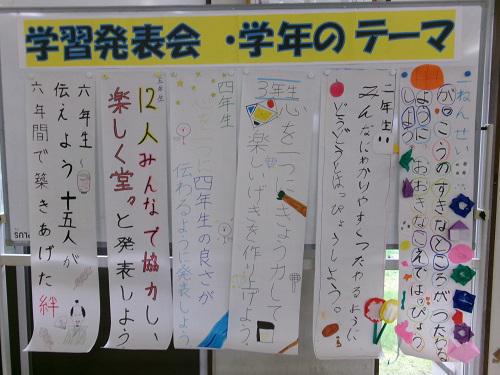 学習発表会・学年のテーマ
一ねんせい
がっこうのすきなところがつたわる
ように おおきなこえではっぴょう
しよう
二年生
みんなにわかりやすくつたわるように
どうどうとはっぴょうしよう。
3年生
心を一つにきょう力して
楽しいげきを作り上げよう。
四年生
四年生の良さが
伝わるように発表しよう
五年生
12人みんなで協力し、
楽しく堂々と発表しよう
六年生
伝えよう十五人が
六年間で築きあげた絆